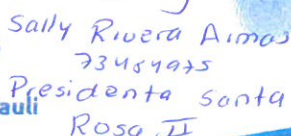 Sally Rivera Armas
73454975
Presidenta Santa
auli
Rosa II